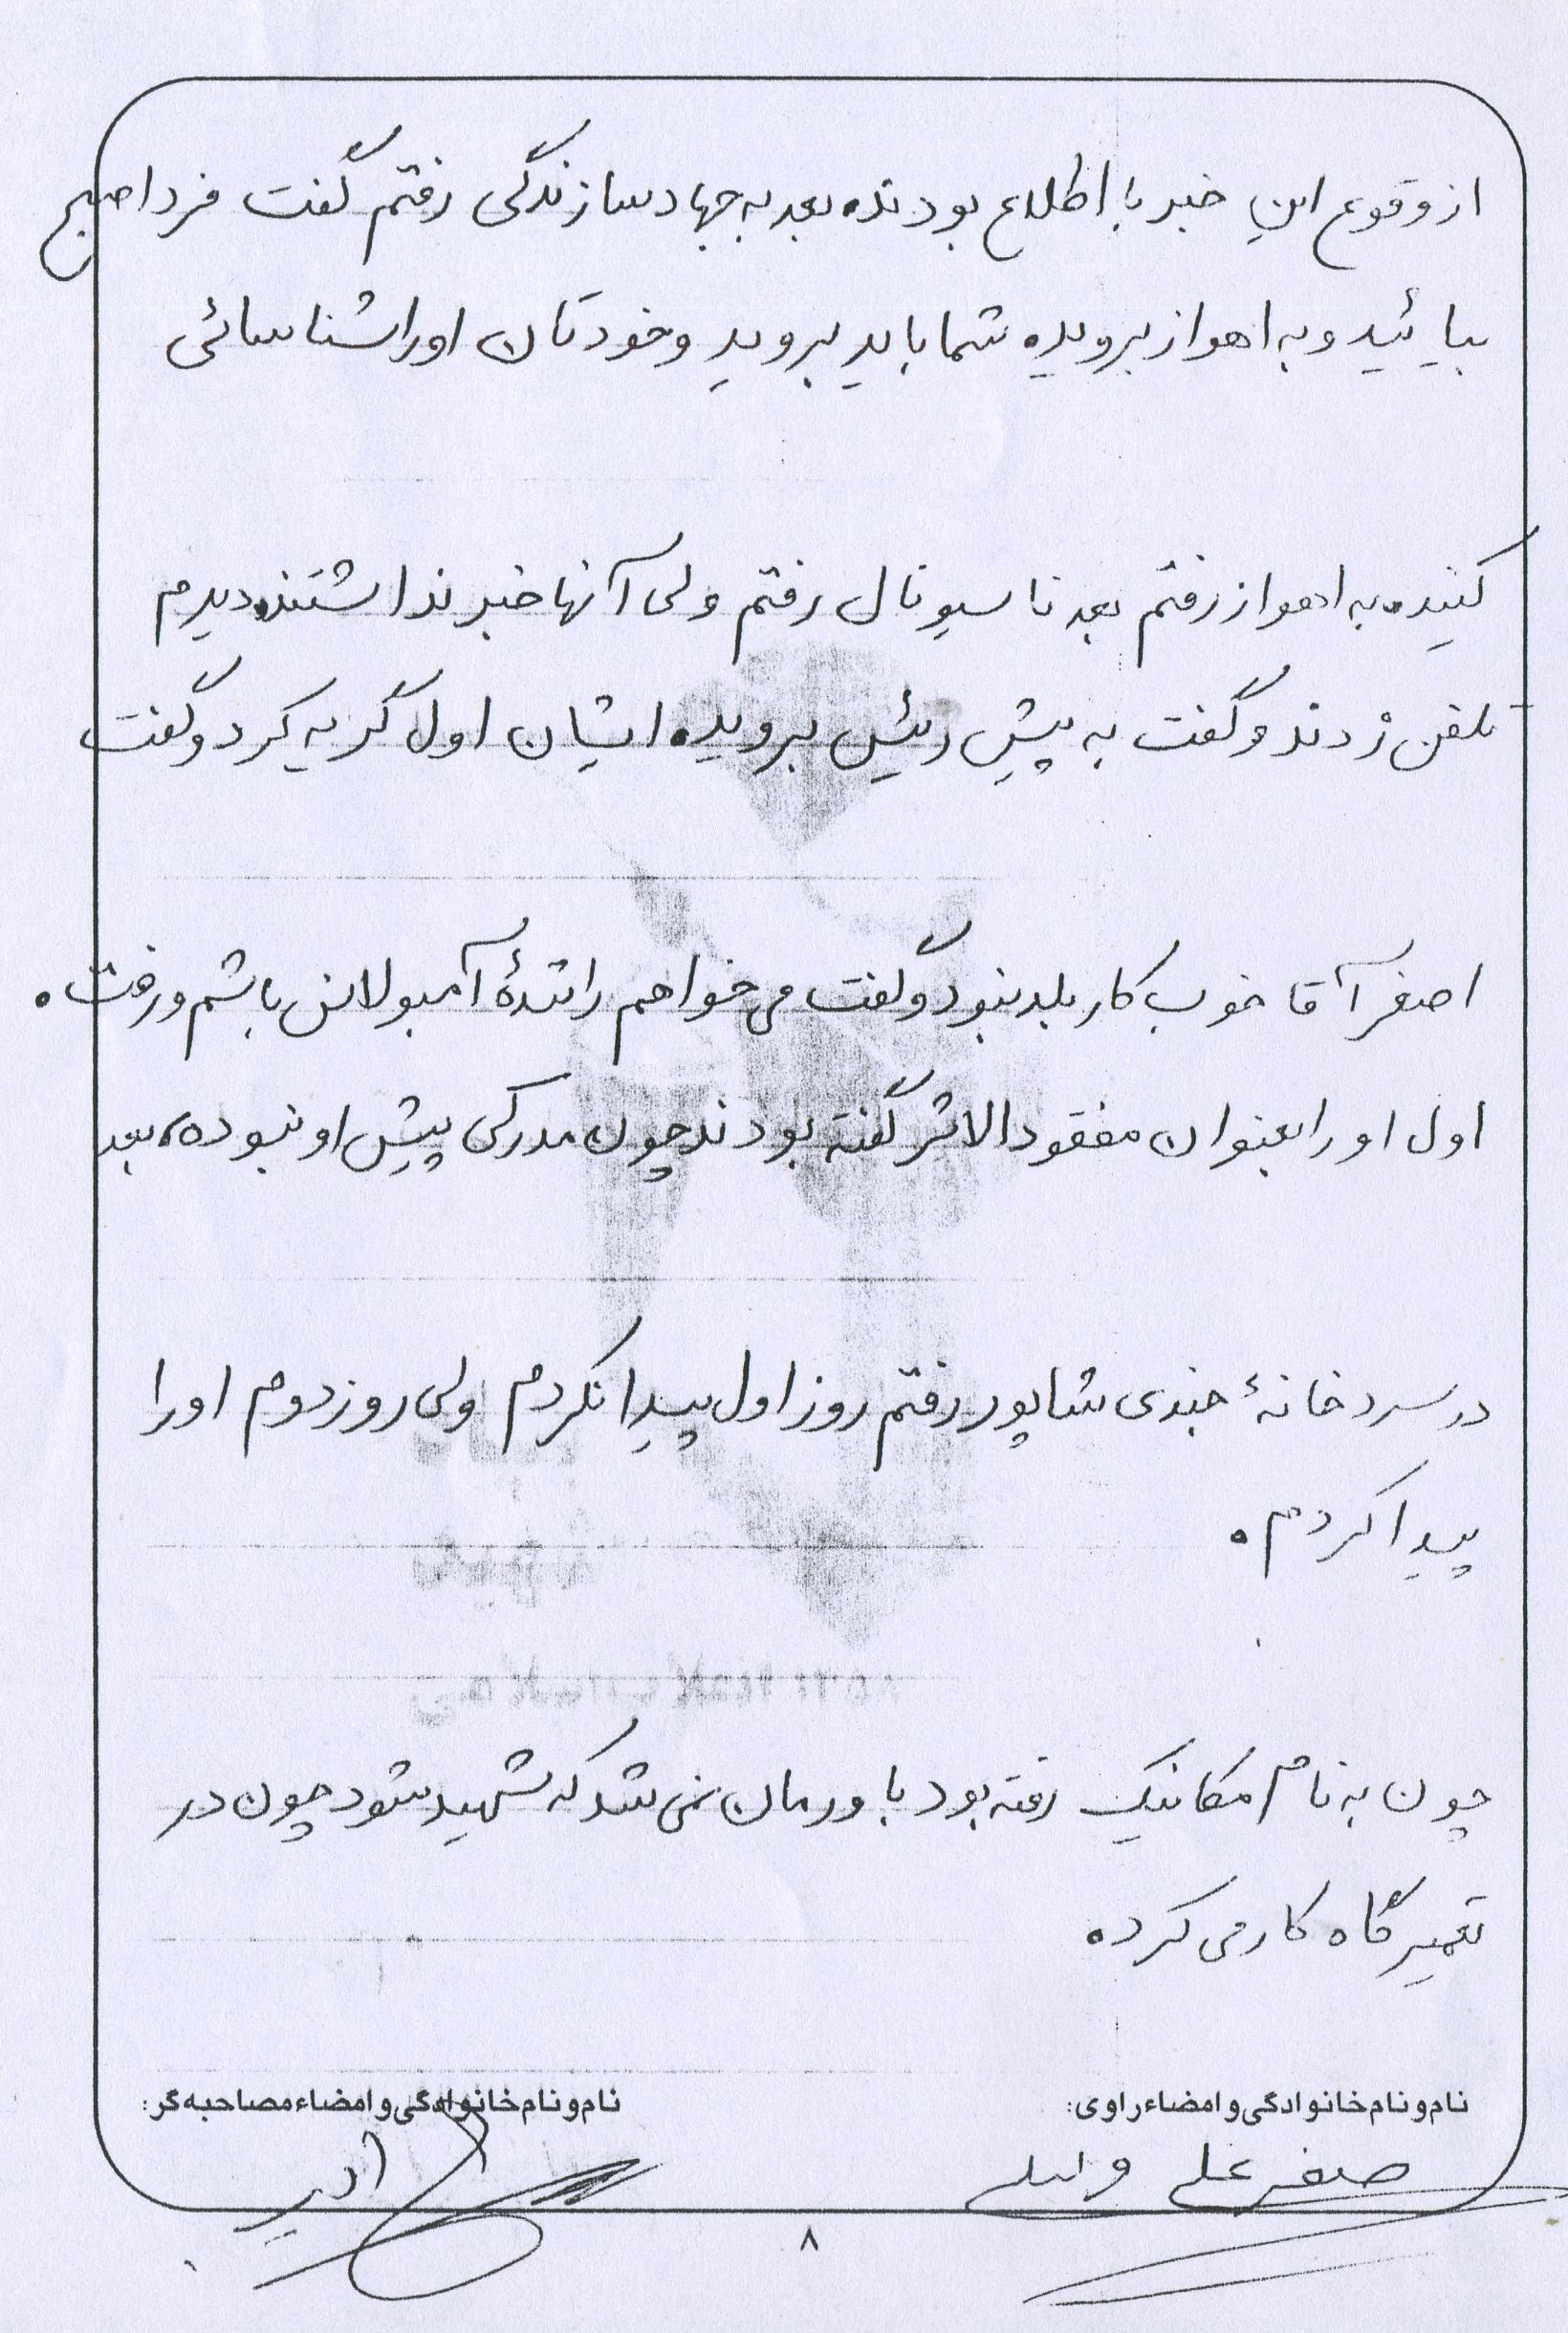 از وقوع این خبر با اطلاع بودند. بعد به جهاد سازندگی رفتم گفت فردا صبح
بیائید و به اهواز بروید. شما باید بروید و خودتان او را شناسائی
کنید. به اهواز رفتم بعد ناسیونال رفتم ولی آنها خبر نداشتند. دیدم
تلفن زدند و گفت به پیش رئیس بروید. ایشان اول گریه کرد و گفت
اصغر آقا خوب کار بلد نبود و گفت می خواهم رانندهٔ آمبولانس باشم و رفت.
اول او را بعنوان مفقودالاثر گفته بودند چون مدرکی پیش او نبوده، بعد
در سردخانهٔ جندی شاپور رفتم روز اول پیدا نکردم ولی روز دوم او را
پیدا کردم.
چون به نام مکانیک رفته بود باورمان نمی شد که شهید شود چون در
تعمیرگاه کار می کرد.
نام و نام خانوادگی و امضاء راوی:
نام و نام خانوادگی و امضاء مصاحبه گر:
صفر علی
۸